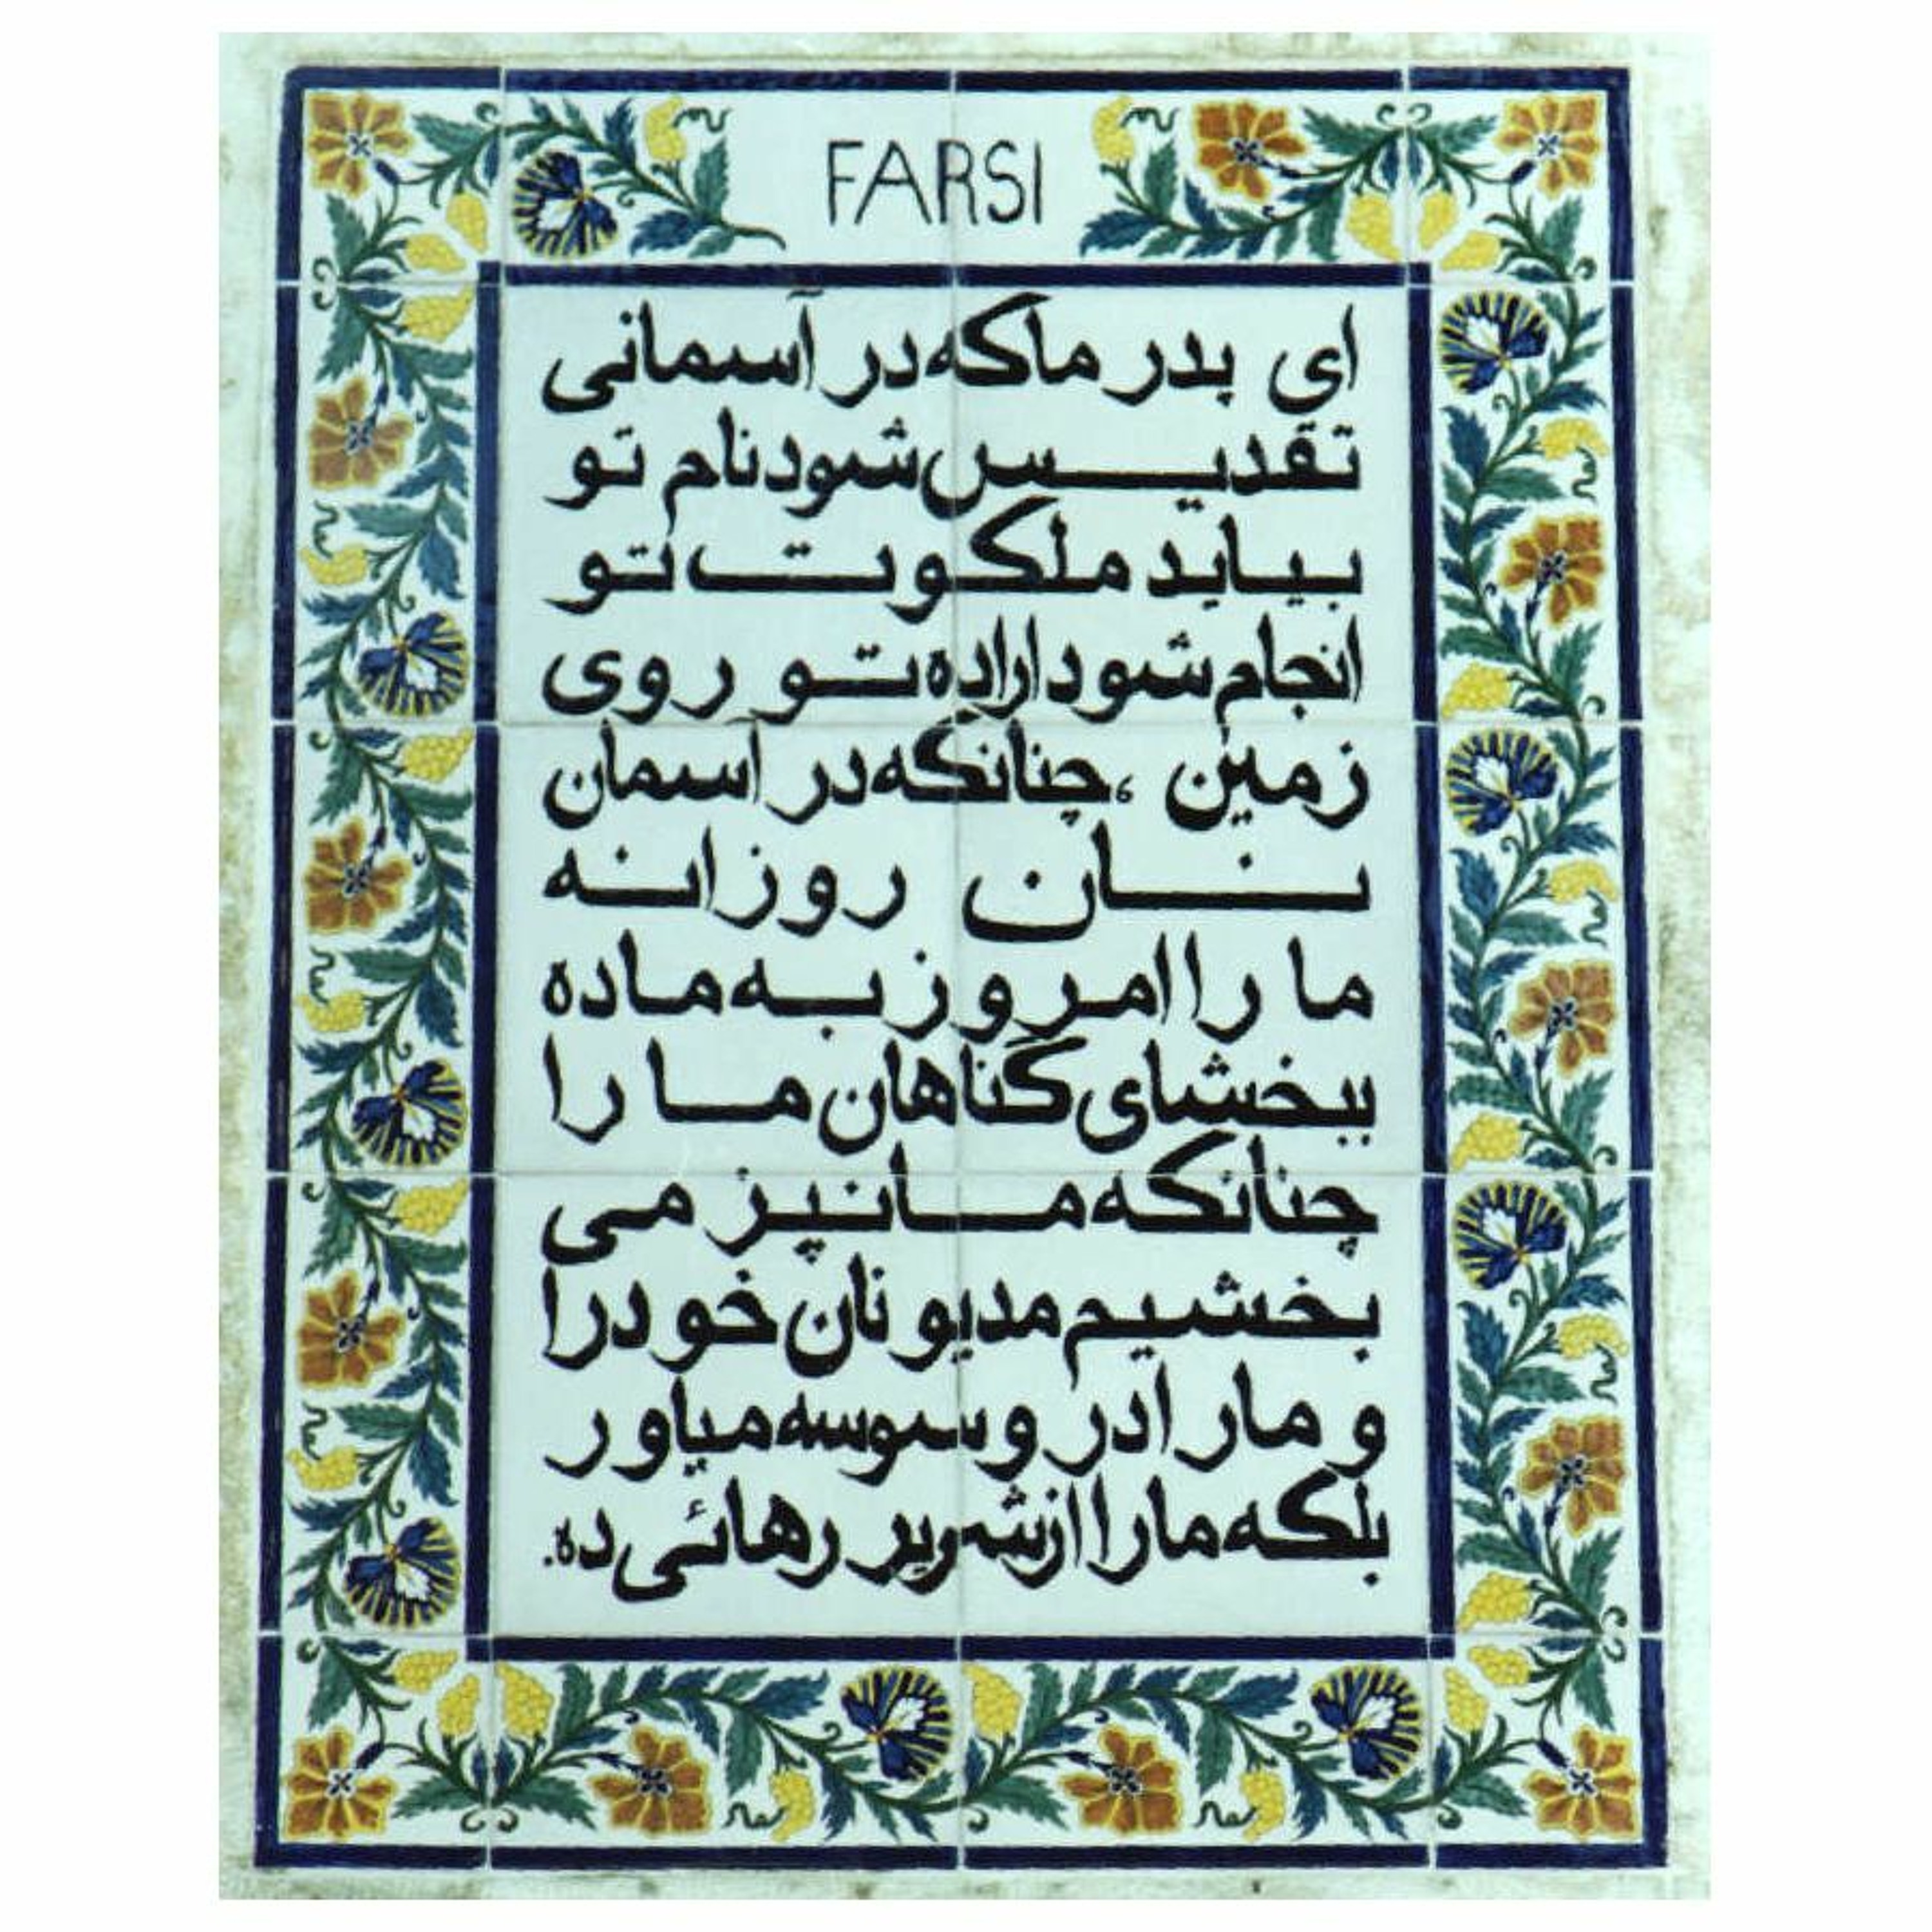 FARSI
ای پدر ماکه در آسمانی
تقدیس شود نام تو
بیاید ملکوت تو
انجام شود اراده تو روی
زمین ، چنانکه در آسمان
نان روزانه
ما را امروز به ماده
ببخشای گناهان ما را
چنانکه ما نپز می
بخشیم مدیونان خودرا
و مارا در وسوسه میاور
بلکه مارا از شریر رهائی ده.